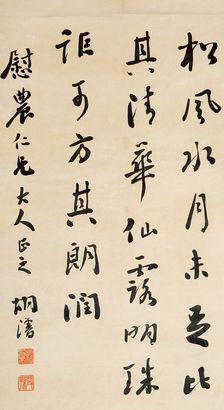 松風水月未足比
其清華仙露明珠
詎可方其朗潤
慰農仁兄大人正之